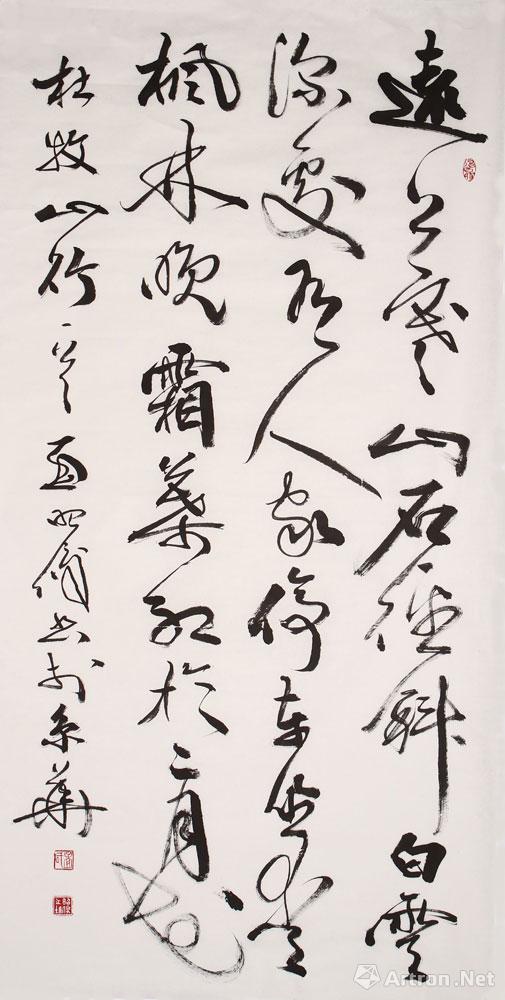 遠上寒山石徑斜白雲
深處有人家停車坐愛
楓林晚霜葉紅於二月花
杜牧山行一首 書於京華
Artron.Net